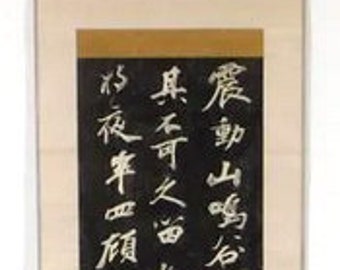 震動山鳴谷
其不可久留
時夜半四顧